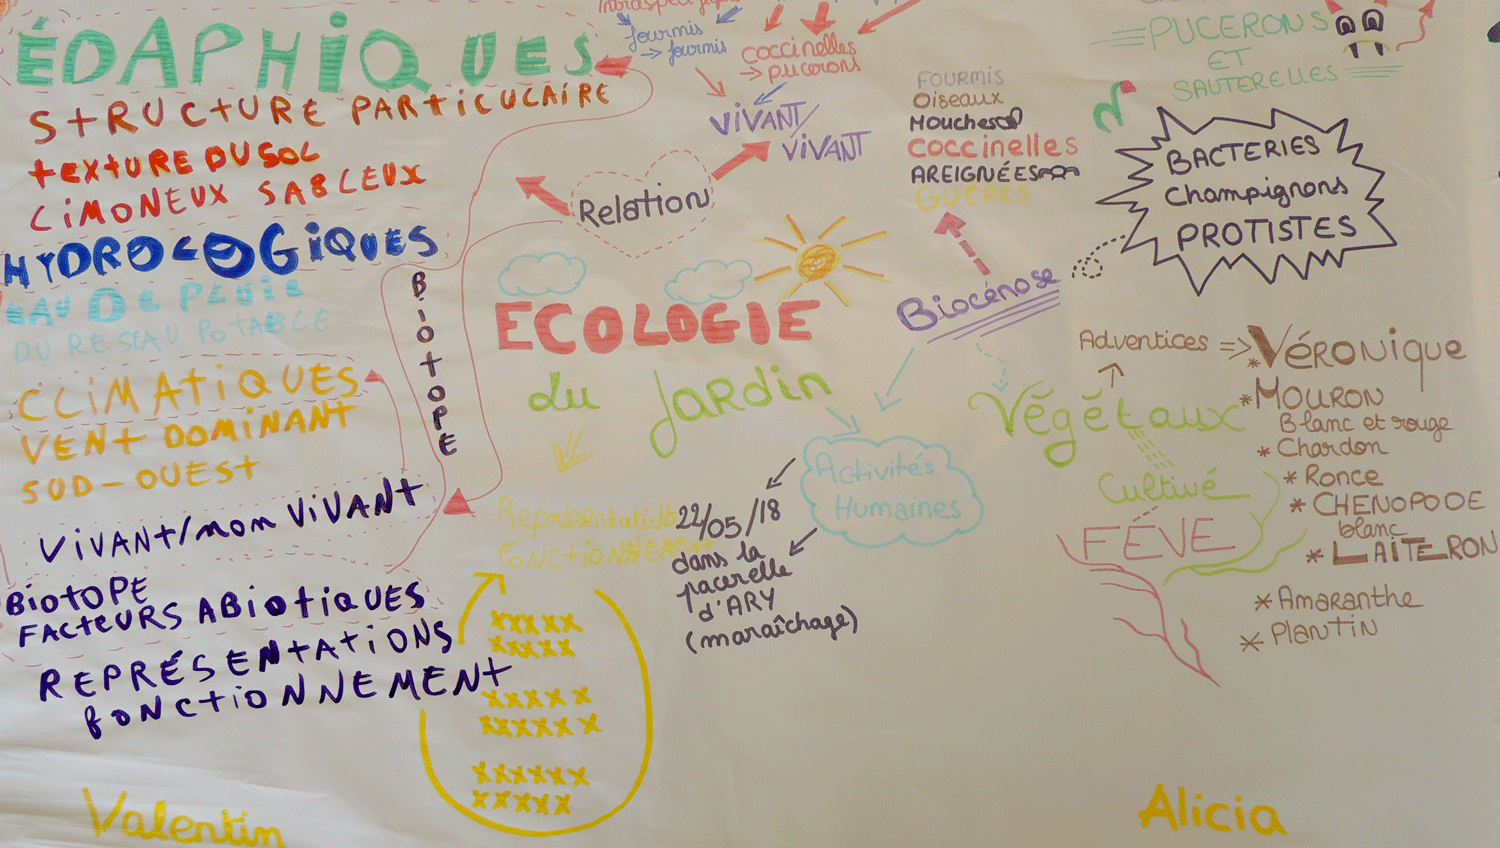 ÉDAPHIQUES
STRUCTURE PARTICULAIRE
TEXTURE DU SOL
LIMONEUX SABLEUX
HYDROLOGIQUES
EAU DE PLUIE
DU RESEAU POTABLE
CLIMATIQUES
VENT DOMINANT
SUD-OUEST
VIVANT/non VIVANT
BIOTOPE
FACTEURS ABIOTIQUES
REPRÉSENTATIONS
FONCTIONNEMENT
Valentin
BIOTOPE
fourmis
→ fourmis
coccinelles
→ pucerons
VIVANT/
VIVANT
Relation
ECOLOGIE
du Jardin
Représentation
FONCTIONNEMENT
xxxxx
xxxxx
xxxxx
xxxxxx
xxxxxx
xxxxx
FOURMIS
Oiseaux
Mouches
Coccinelles
AREIGNÉES
GUÊPES
Biocénose
Activités
Humaines
22/05/18
dans la
parcelle
d'ARY
(maraîchage)
PUCERONS
ET
SAUTERELLES
BACTERIES
Champignons
PROTISTES
Adventices => * VÉRONIQUE
Végétaux
* MOURON
Blanc et rouge
* Chardon
* Ronce
* CHENOPODE
blanc
* LAITERON
* Amaranthe
* Plantin
Cultivé
FÉVE
Alicia